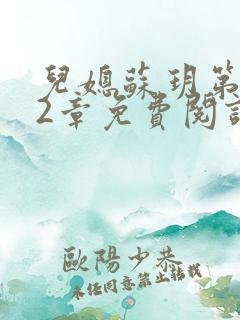 兒媳蘇玥第
2章免費閱讀
歐陽少恭
未任同意禁止轉載